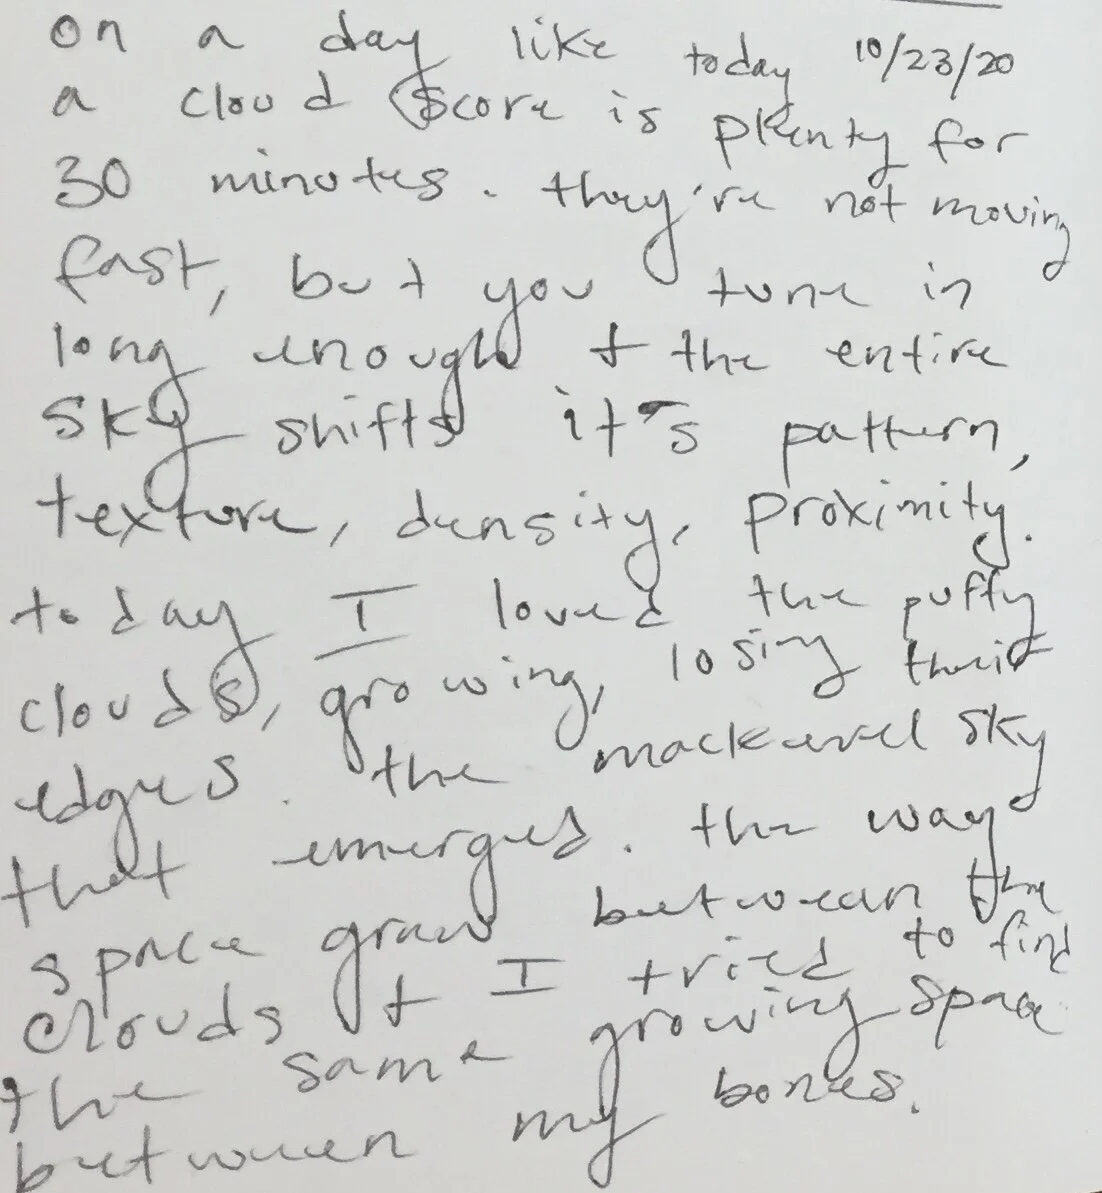 on a day like today 10/23/20
a cloud score is plenty for
30 minutes. they're not moving
fast, but you tune in
long enough + the entire
sky shifts it's pattern,
texture, density, proximity.
today I loved the puffy
clouds, growing, losing their
edges. the mackerel sky
that emerged. the way
space grew between the
clouds + I tried to find
the same growing space
between my bones.